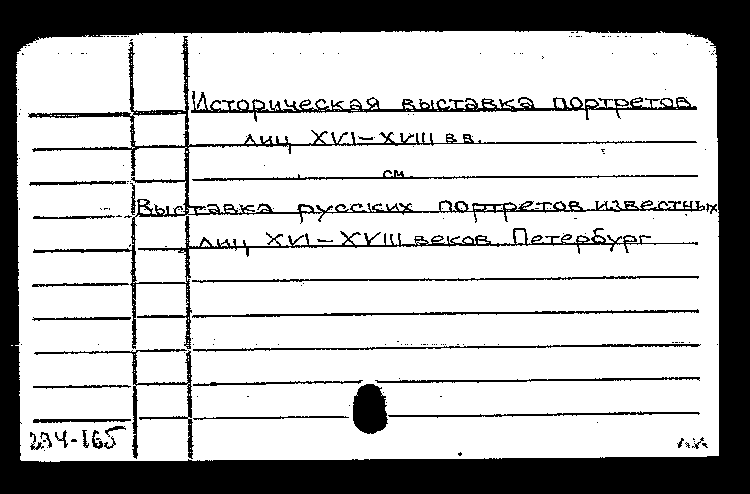 Историческая выставка портретов
лиц XVI–XVIII вв.
см.
Выставка русских портретов известных
лиц XVI–XVIII веков. Петербург
294-165